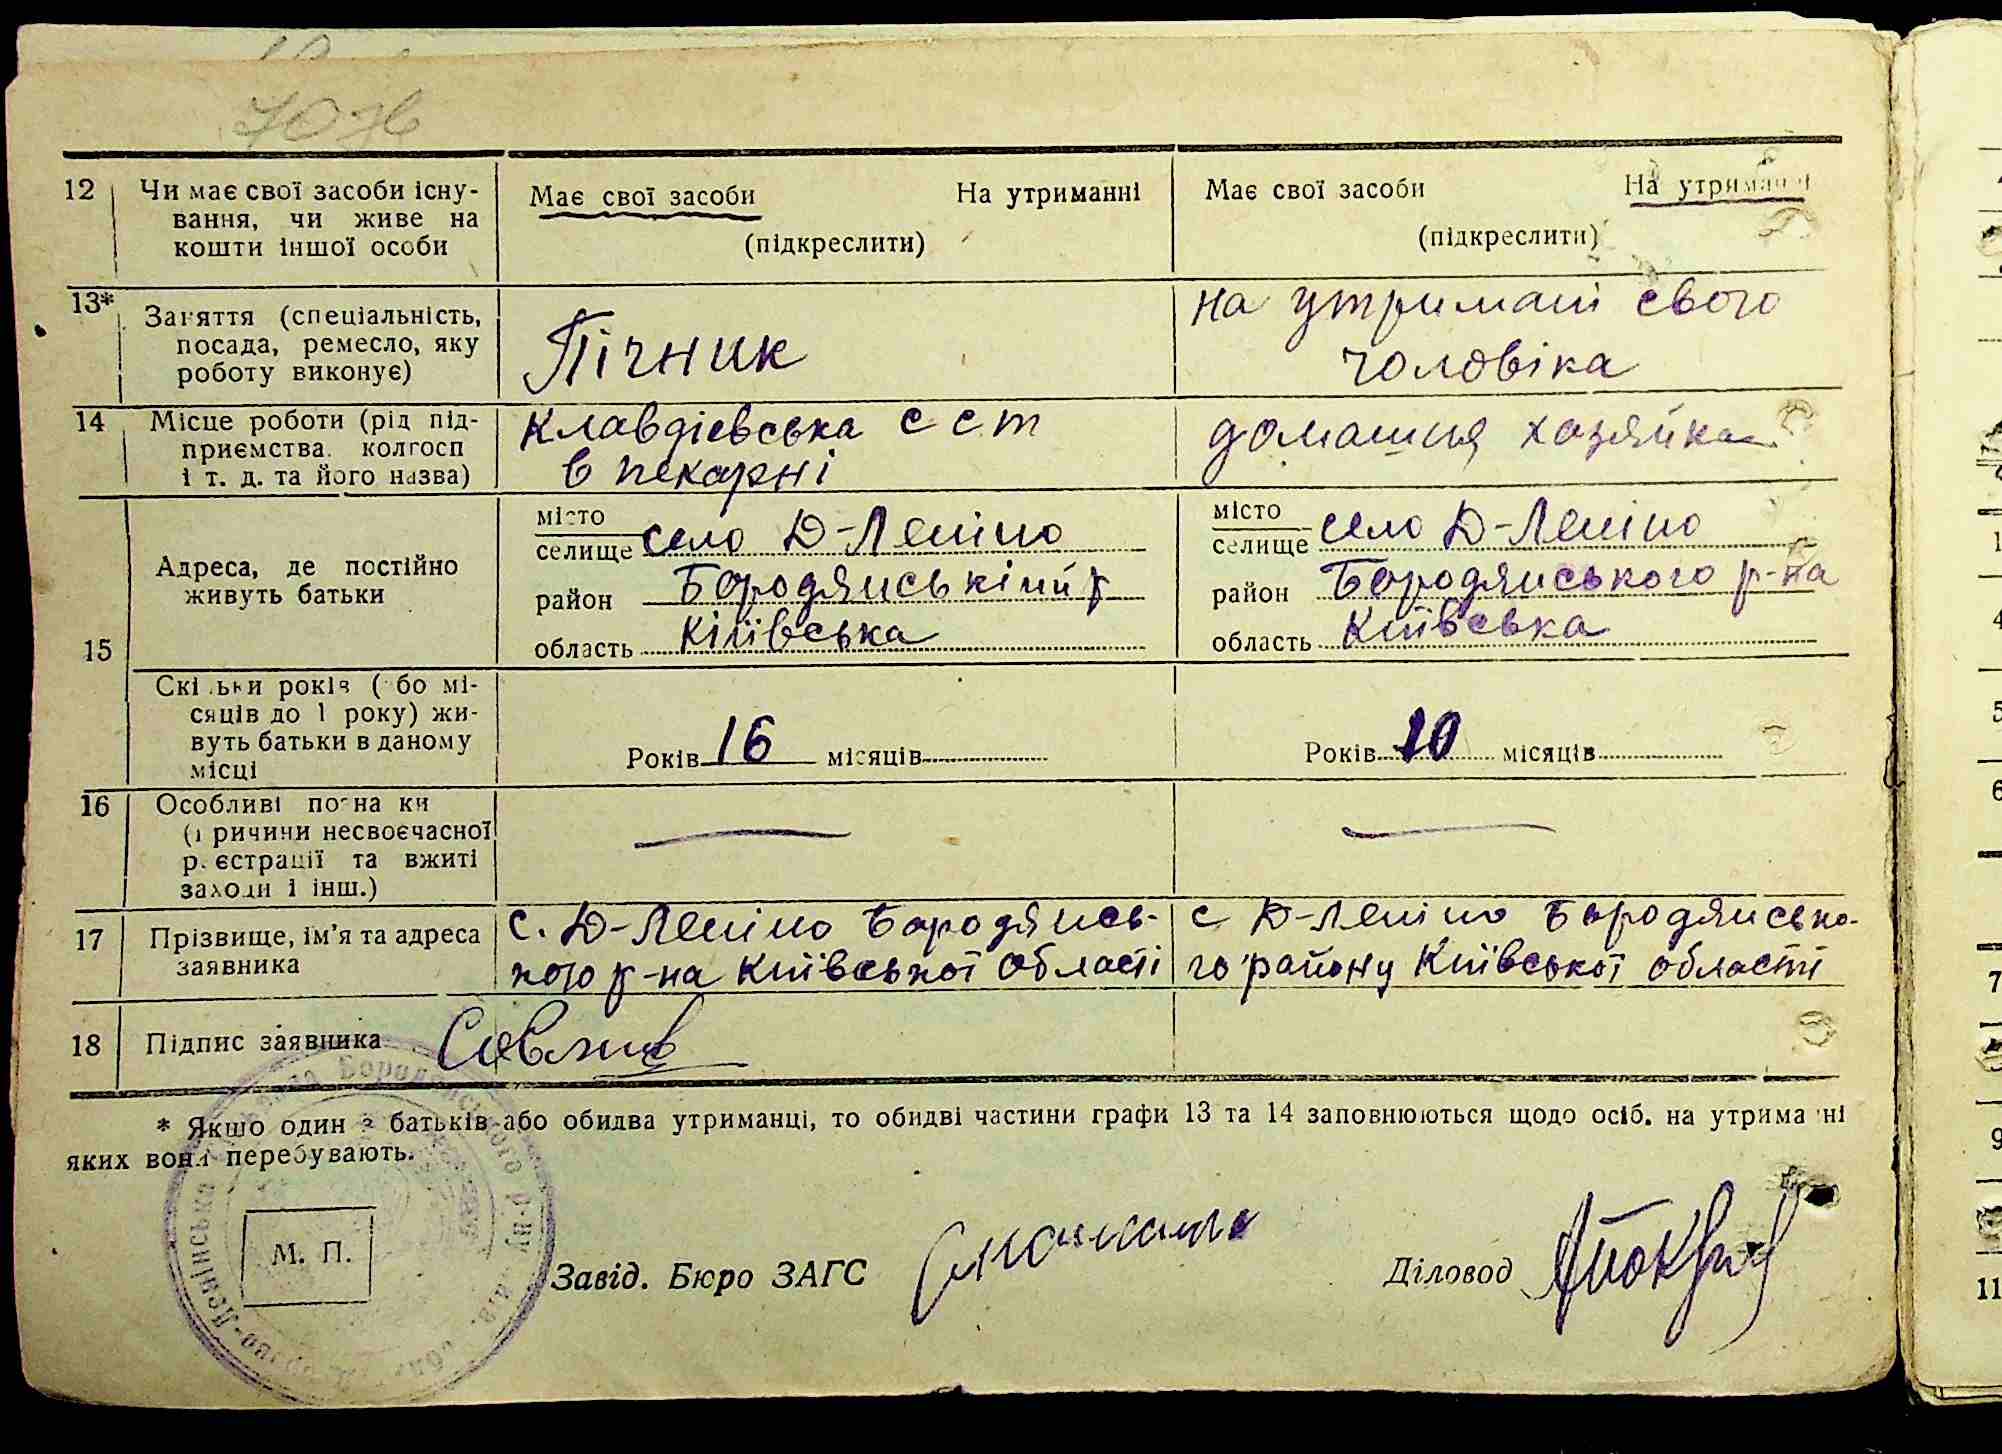 12 Чи має свої засоби існу-
вання, чи живе на
кошти іншої особи
Має свої засоби На утриманні
(підкреслити)
Має свої засоби На утриманні
(підкреслити)
13* Заняття (спеціальність,
посада, ремесло, яку
роботу виконує)
Пічник
на утримані свого
чоловіка
14 Місце роботи (рід під-
приємства, колгосп
і т. д. та його назва)
Клавдієвська ССТ
в пекарні
домашня хозяйка
15 Адреса, де постійно
живуть батьки
місто
селище село Д-Леніно
район Бородянський р
область Київська
місто
селище село Д-Леніно
район Бородянського р-на
область Київська
Скільки років (або мі-
сяців до 1 року) жи-
вуть батьки в даному
місці
Років 16 місяців
Років 10 місяців
16 Особливі познаки
(причини несвоєчасної
реєстрації та вжиті
заходи і інш.)
17 Прізвище, ім'я та адреса
заявника
с. Д-Леніно Бородянсь-
кого р-на Київської області
с Д-Леніно Бородянсько-
го району Київської області
18 Підпис заявника
* Якщо один з батьків або обидва утриманці, то обидві частини графи 13 та 14 заповнюються щодо осіб, на утриманні
яких вони перебувають.
М. П.
Завід. Бюро ЗАГС
Діловод